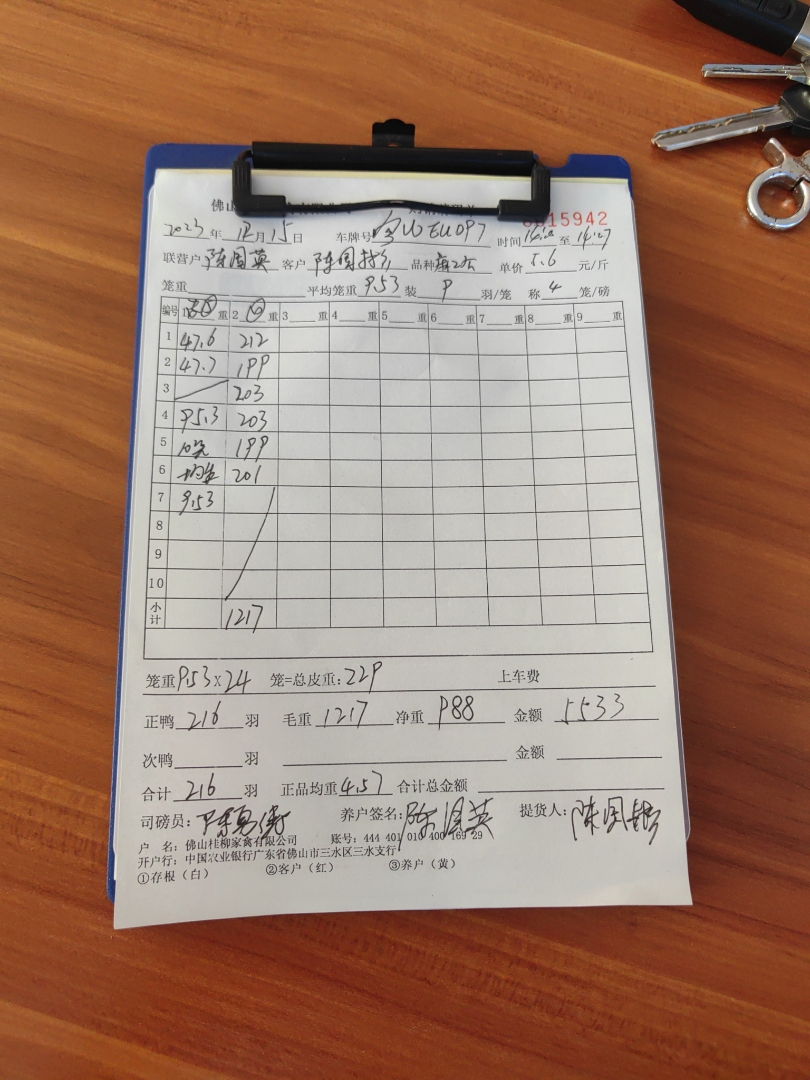 佛山
15942
2023年 12月15日 车牌号 EU097 时间 至 14:27
联营户 陈国英 客户 品种 单价 5.6 元/斤
笼重 平均笼重 9.53 装 9 羽/笼 称 4 笼/磅
编号 1 重 2 重 3 重 4 重 5 重 6 重 7 重 8 重 9 重
1 47.6 212
2 47.7 199
3 203
4 95.3 203
5 199
6 201
7 9.53
8
9
10
小计 1217
笼重 9.53 x 24 笼=总皮重: 229 上车费
正鸭 216 羽 毛重 1217 净重 988 金额 5533
次鸭 羽 金额
合计 216 羽 正品均重 4.57 合计总金额
司磅员: 养户签名: 陈国英 提货人:
户 名: 佛山桂柳家禽有限公司 账号: 444 401 010 400 169 29
开户行: 中国农业银行广东省佛山市三水区三水支行
①存根（白） ②客户（红） ③养户（黄）